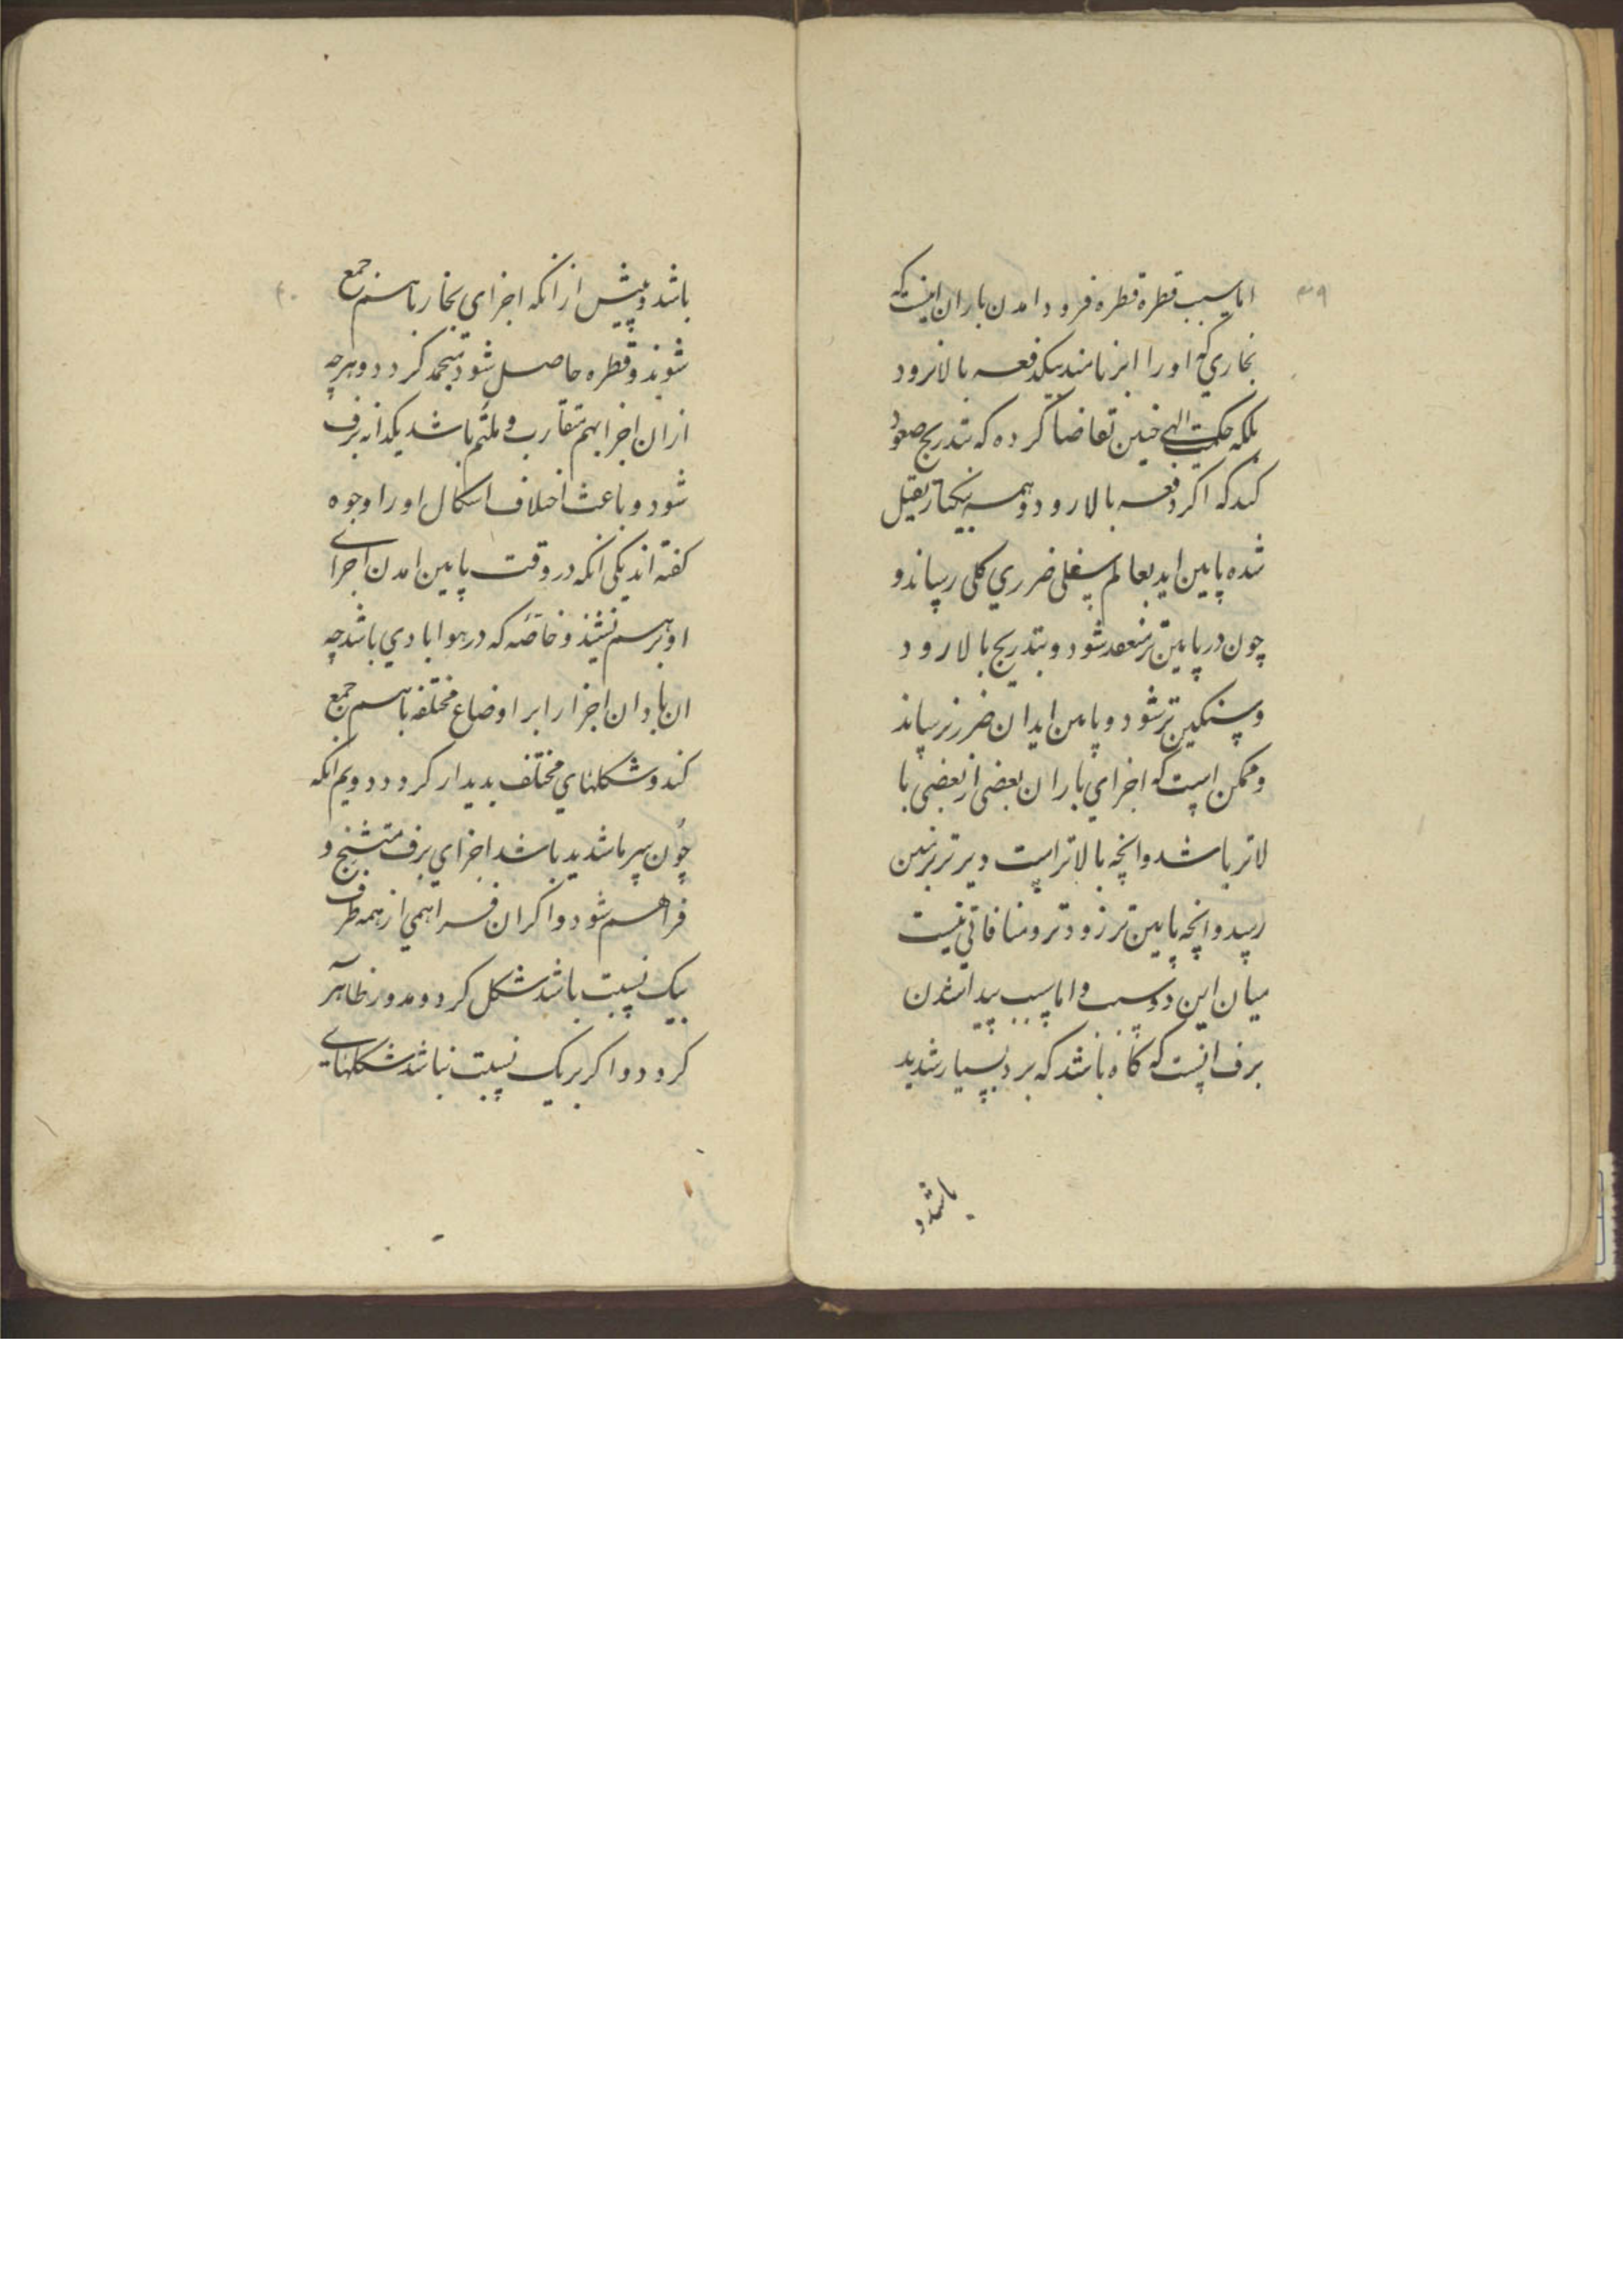 ۳۹
اما سبب قطره قطره فرود امدن باران اینست که
بخاري که او را ابر نامند بیکدفعه بالا نرود
بلکه حکمت الهی چنین تقاضا کرده که بتدریج صعود
کند که اکر دفعه بالا رود و همه بیکبار ثقیل
شده پایین اید بعالم سفلی ضرري کلی رساند و
چون در پایین‌تر منعقد شود و بتدریج بالا رود
و سنکین‌تر شود و پایین اید ان ضرر نرساند
و ممکن است که اجزاي باران بعضی از بعضی با
لاتر باشد و انچه بالاتر است دیرتر بزمین
رسد و انچه پایین‌تر زودتر و منافاتی نیست
میان این دو سبب و اما سبب پیدا شدن
برف انست که کاه باشد که برد بسیار شدید
باشد و
۴۰
باشد و پیش از انکه اجزاي بخار باهم جمع
شوند و قطره حاصل شود منجمد کردد و هرچه
ازان اجزا بهم متقارب و ملتئم باشد یکدانه برف
شود و باعث اختلاف اشکال او را وجوه
کفته اند یکی انکه در وقت پایین امدن اجزای
او برهم نشیند و خاصّه که در هوا بادي باشد چه
ان باد ان اجزا را بر اوضاع مختلفه باهم جمع
کند و شکلهاي مختلف بدیدار کردد دویم انکه
چون سرما شدید باشد اجزاي برف متشنج و
فراهم شود و اکر ان فراهمي از همه طرف
بیک نسبت باشد شکل کرد و مدور ظاهر
کردد و اکر بریک نسبت نباشد شکلهای